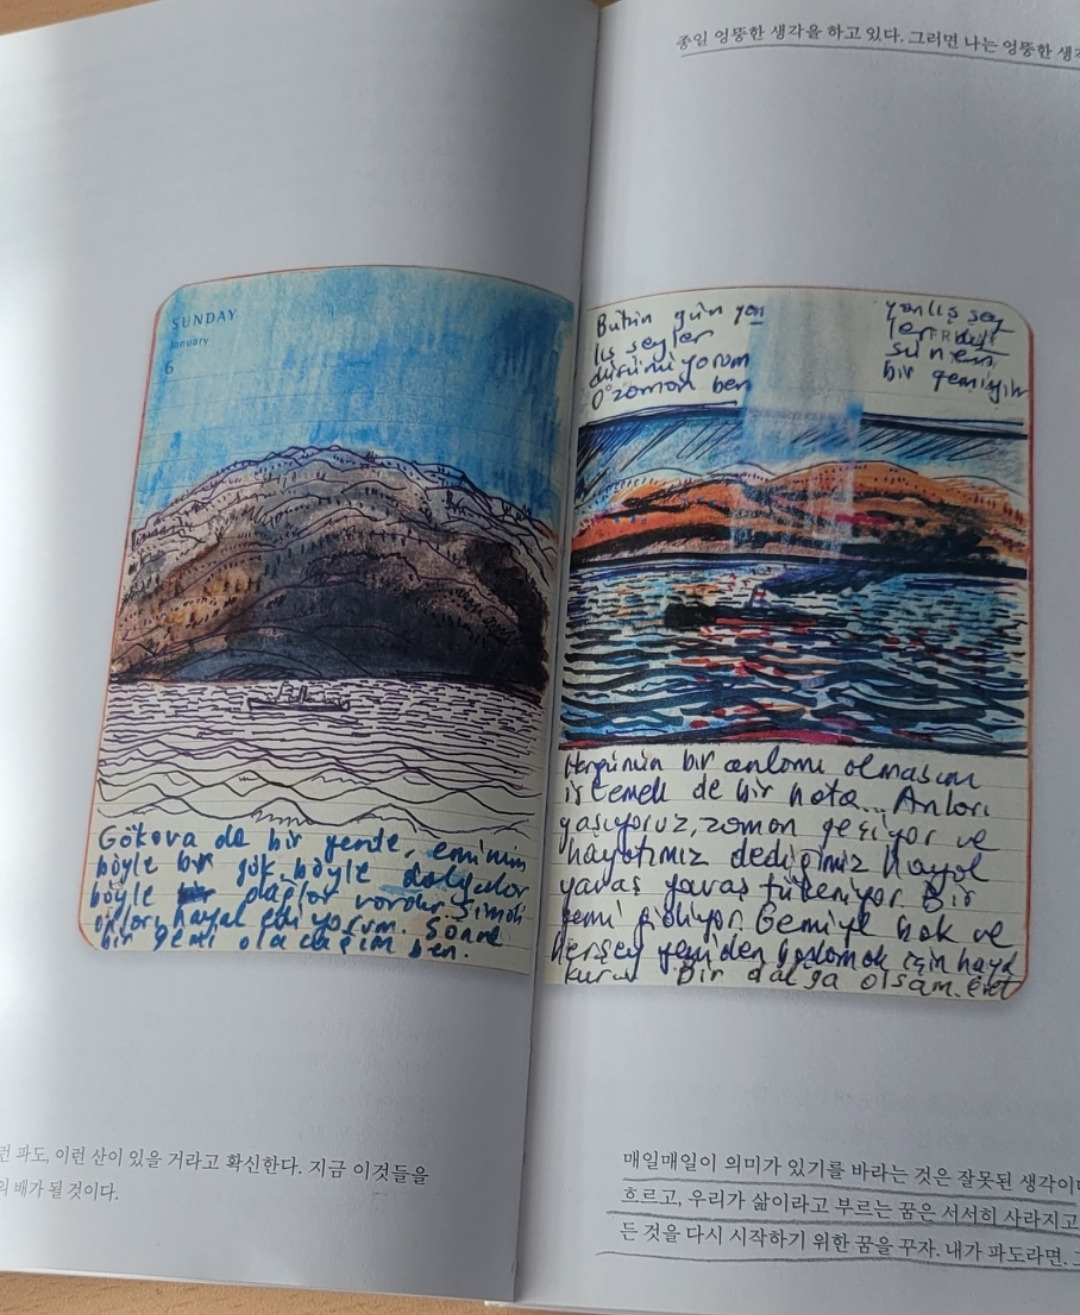 SUNDAY
January
6
Gökova da bir yerde, eminim
böyle bir gök, böyle dalgalar
böyle dağlar vardır. Şimdi
onları hayal ediyorum. Sonra
bir gemi olacağım ben.
런 파도, 이런 산이 있을 거라고 확신한다. 지금 이것들을
의 배가 될 것이다.
종일 엉뚱한 생각을 하고 있다. 그러면 나는 엉뚱한 생각
Bütün gün yan
lış şeyler
düşünüyorum
O zaman ben
yanlış şey
ler
şünen
bir gemiyim
Hergünün bir anlamı olmasını
istemek de bir hata... Anları
yaşıyoruz, zaman geçiyor ve
hayatımız dediğimiz hayal
yavaş yavaş tükeniyor. Bir
gemi gidiyor. Gemiye bak ve
herşey yeniden başlamak için hayal
kur Bir dalga olsam. evet
매일매일이 의미가 있기를 바라는 것은 잘못된 생각이다
흐르고, 우리가 삶이라고 부르는 꿈은 서서히 사라지고
든 것을 다시 시작하기 위한 꿈을 꾸자. 내가 파도라면. 그